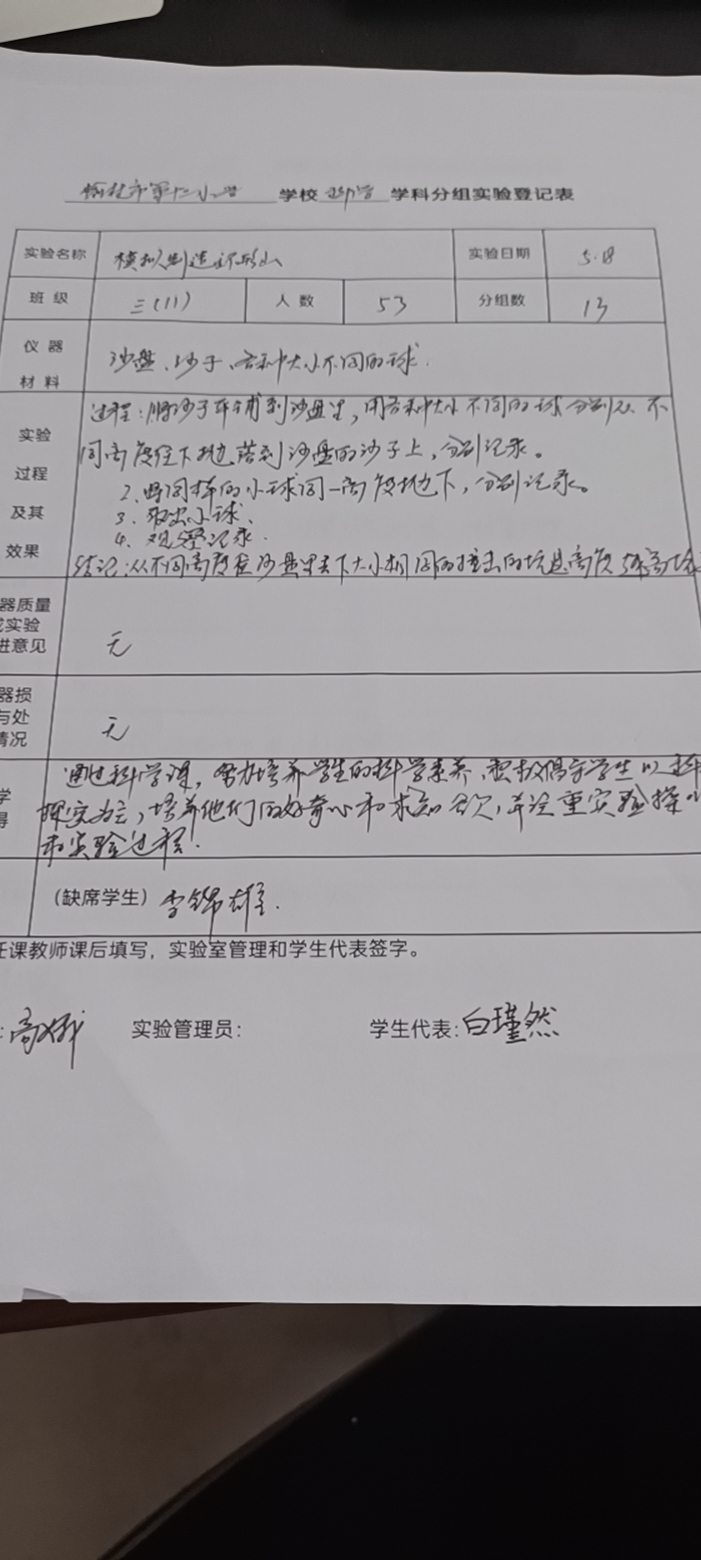 榆林市第十二小学 学校 科学 学科分组实验登记表
实验名称 模拟制造环形山 实验日期 5.18
班 级 三(11) 人 数 53 分组数 13
仪 器 材 料 沙盘、沙子、各种大小不同的球.
实验过程及其效果 过程:将沙子平铺到沙盘里,用各种大小不同的球分别从不
同高度往下抛落到沙盘的沙子上,分别记录。
2、用同样的小球同一高度抛下,分别记录。
3、取出小球、
4、观察记录.
结论:从不同高度在沙盘里丢下大小相同的撞击的坑是高度越高
器质量
实验
进意见 无
器损
与处
情况 无
学
得 通过科学课,努力培养学生的科学素养,积极倡导学生以
探究为主,培养他们的好奇心和求知欲,并注重实验操
和实验过程.
(缺席学生) 李锦雄.
任课教师课后填写,实验室管理和学生代表签字。
实验管理员: 学生代表:白瑾然